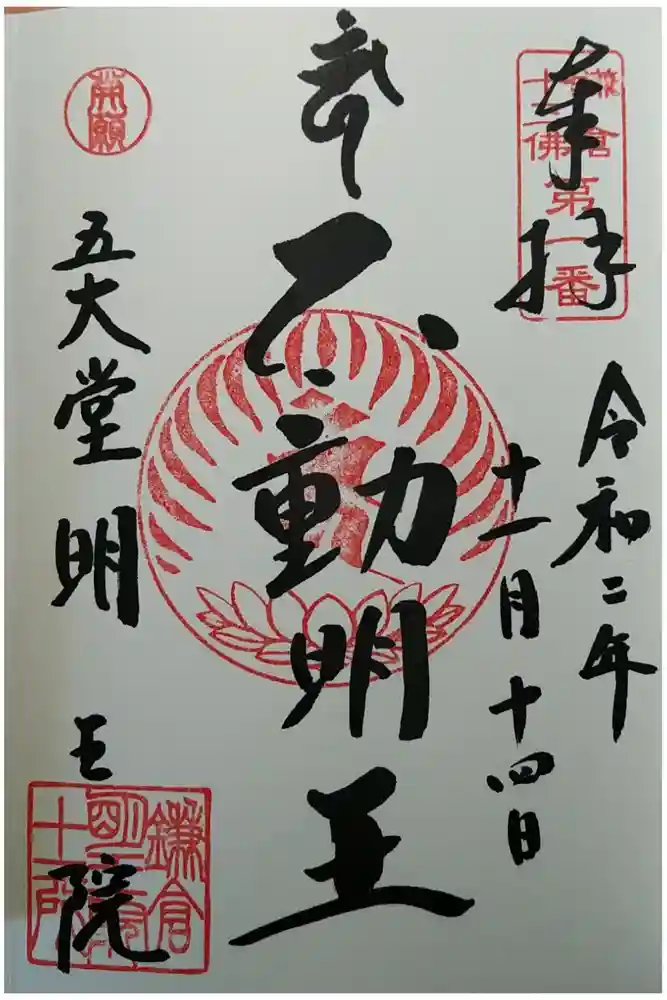 奉拝
令和二年
十一月十四日
不動明王
五大堂明王院
鎌倉
十三佛
第一番
開願
鎌倉
明王
十二所